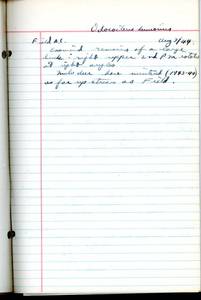 Odocoileus hemionus
Field B.C. Aug 7/44
remains of a large
buck; right upper 2nd P.m. rotated
at right angles
Mule deer have wintered (1943-44)
as far up stream as Field.